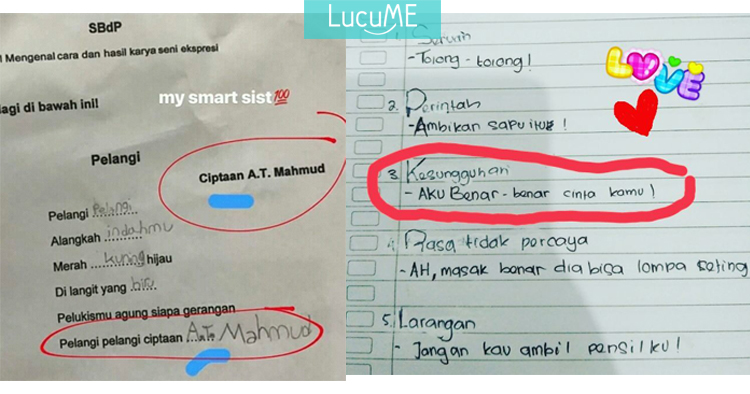 LucuME
SBdP
Mengenal cara dan hasil karya seni ekspresi
lagi di bawah ini!
my smart sist💯
Pelangi
Ciptaan A.T. Mahmud
Pelangi pelangi
Alangkah indahmu
Merah kuning hijau
Di langit yang biru
Pelukismu agung siapa gerangan
Pelangi pelangi ciptaan A.T. Mahmud
1. Seruan
- Tolong - tolong!
LOVE
2. Perintah
- Ambikan sapu itu!
3. Kesungguhan
- AKU Benar - benar cinta kamu!
4. Rasa tidak percaya
- AH, masak benar dia bisa lompa seting
5. Larangan
- Jangan kau ambil pensilku!